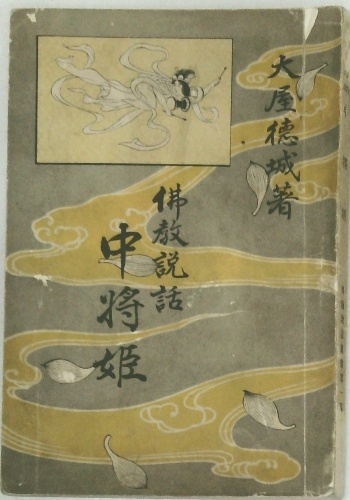 大屋德城著
佛教説話
中将姫